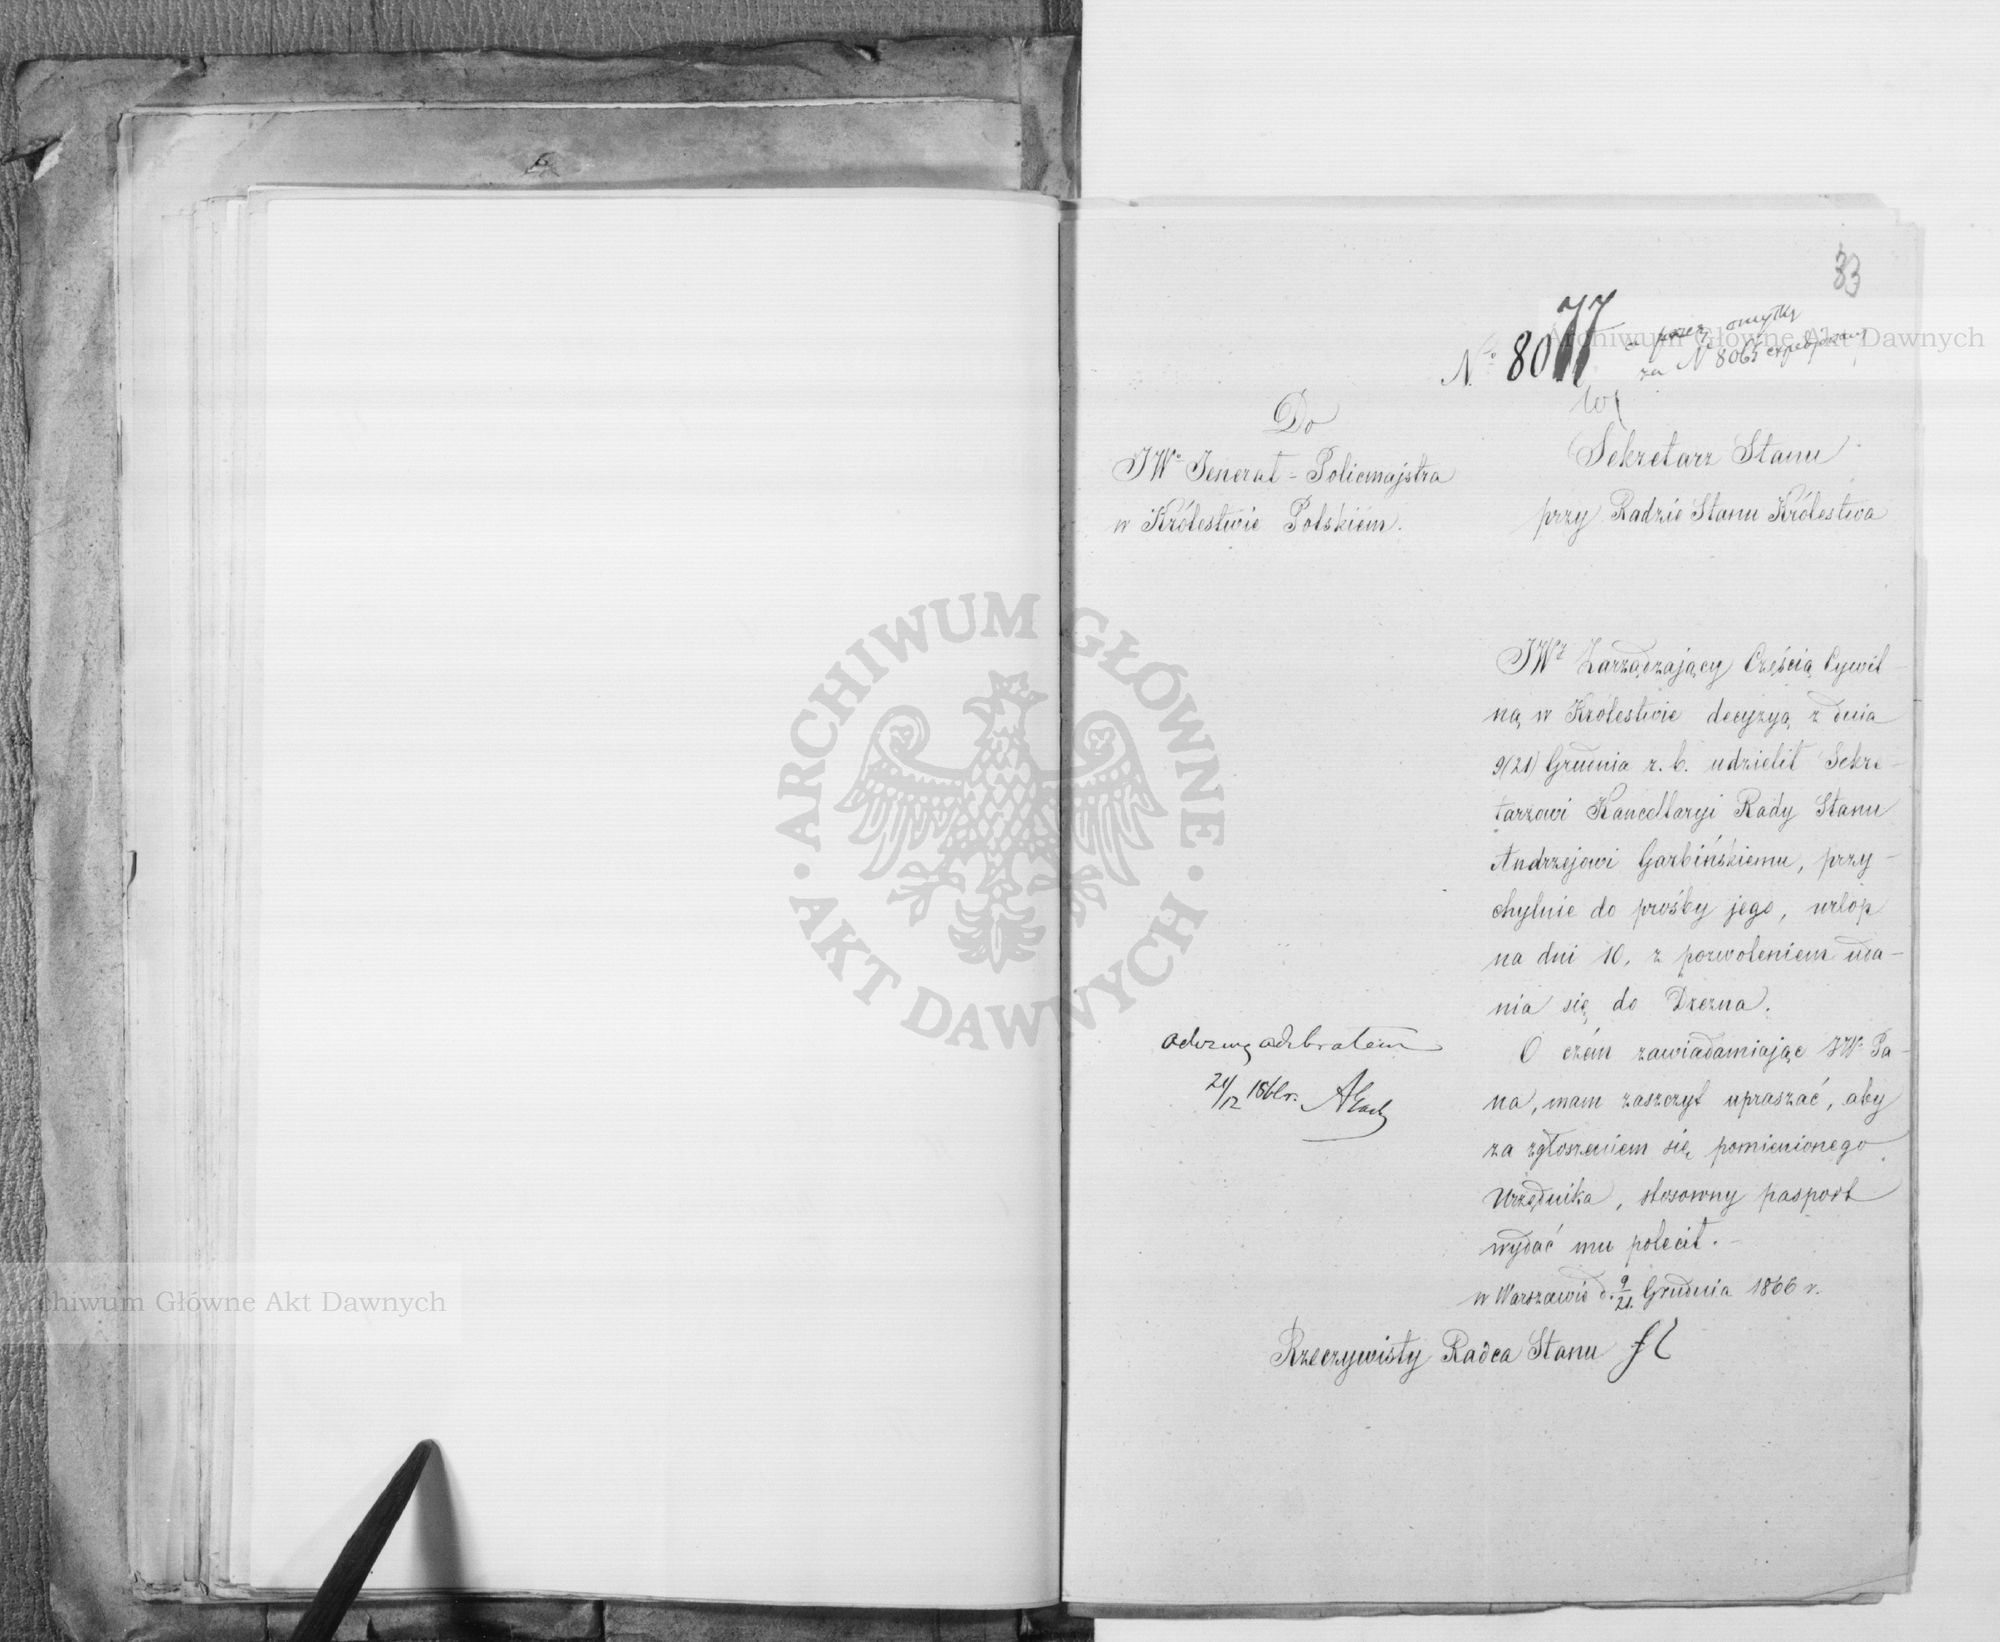 6
33
№ 8077
a przez omyłkę
za № 8065 expedjowany
Do
JWo Jenerał-Policmajstra
w Królestwie Polskiém.
Sekretarz Stanu
przy Radzie Stanu Królestwa
JWy Zarządzający Częścią Cywil-
ną w Królestwie decyzyą z dnia
9/21) Grudnia r. b. udzielił Sekre-
tarzowi Kancellaryi Rady Stanu
Andrzejowi Garbińskiemu, przy-
chylnie do prośby jego, urlop
na dni 10, z pozwoleniem uda-
nia się do Drezna.
O czém zawiadamiając JWo Pa-
na, mam zaszczyt upraszać, aby
za zgłoszeniem się pomienionego
Urzędnika, stosowny pasport
wydać mu polecił.
w Warszawie d. 9/21. Grudnia 1866 r.
Rzeczywisty Radca Stanu
odezwę odebrałem
21/12 1866 r.
ARCHIWUM GŁÓWNE AKT DAWNYCH
Archiwum Główne Akt Dawnych
Archiwum Główne Akt Dawnych